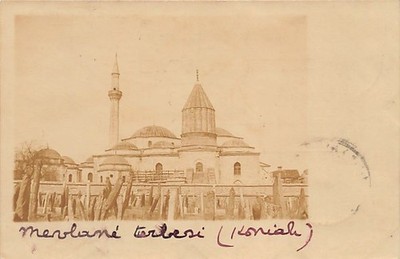 Mevlané terbesi (Koniah)